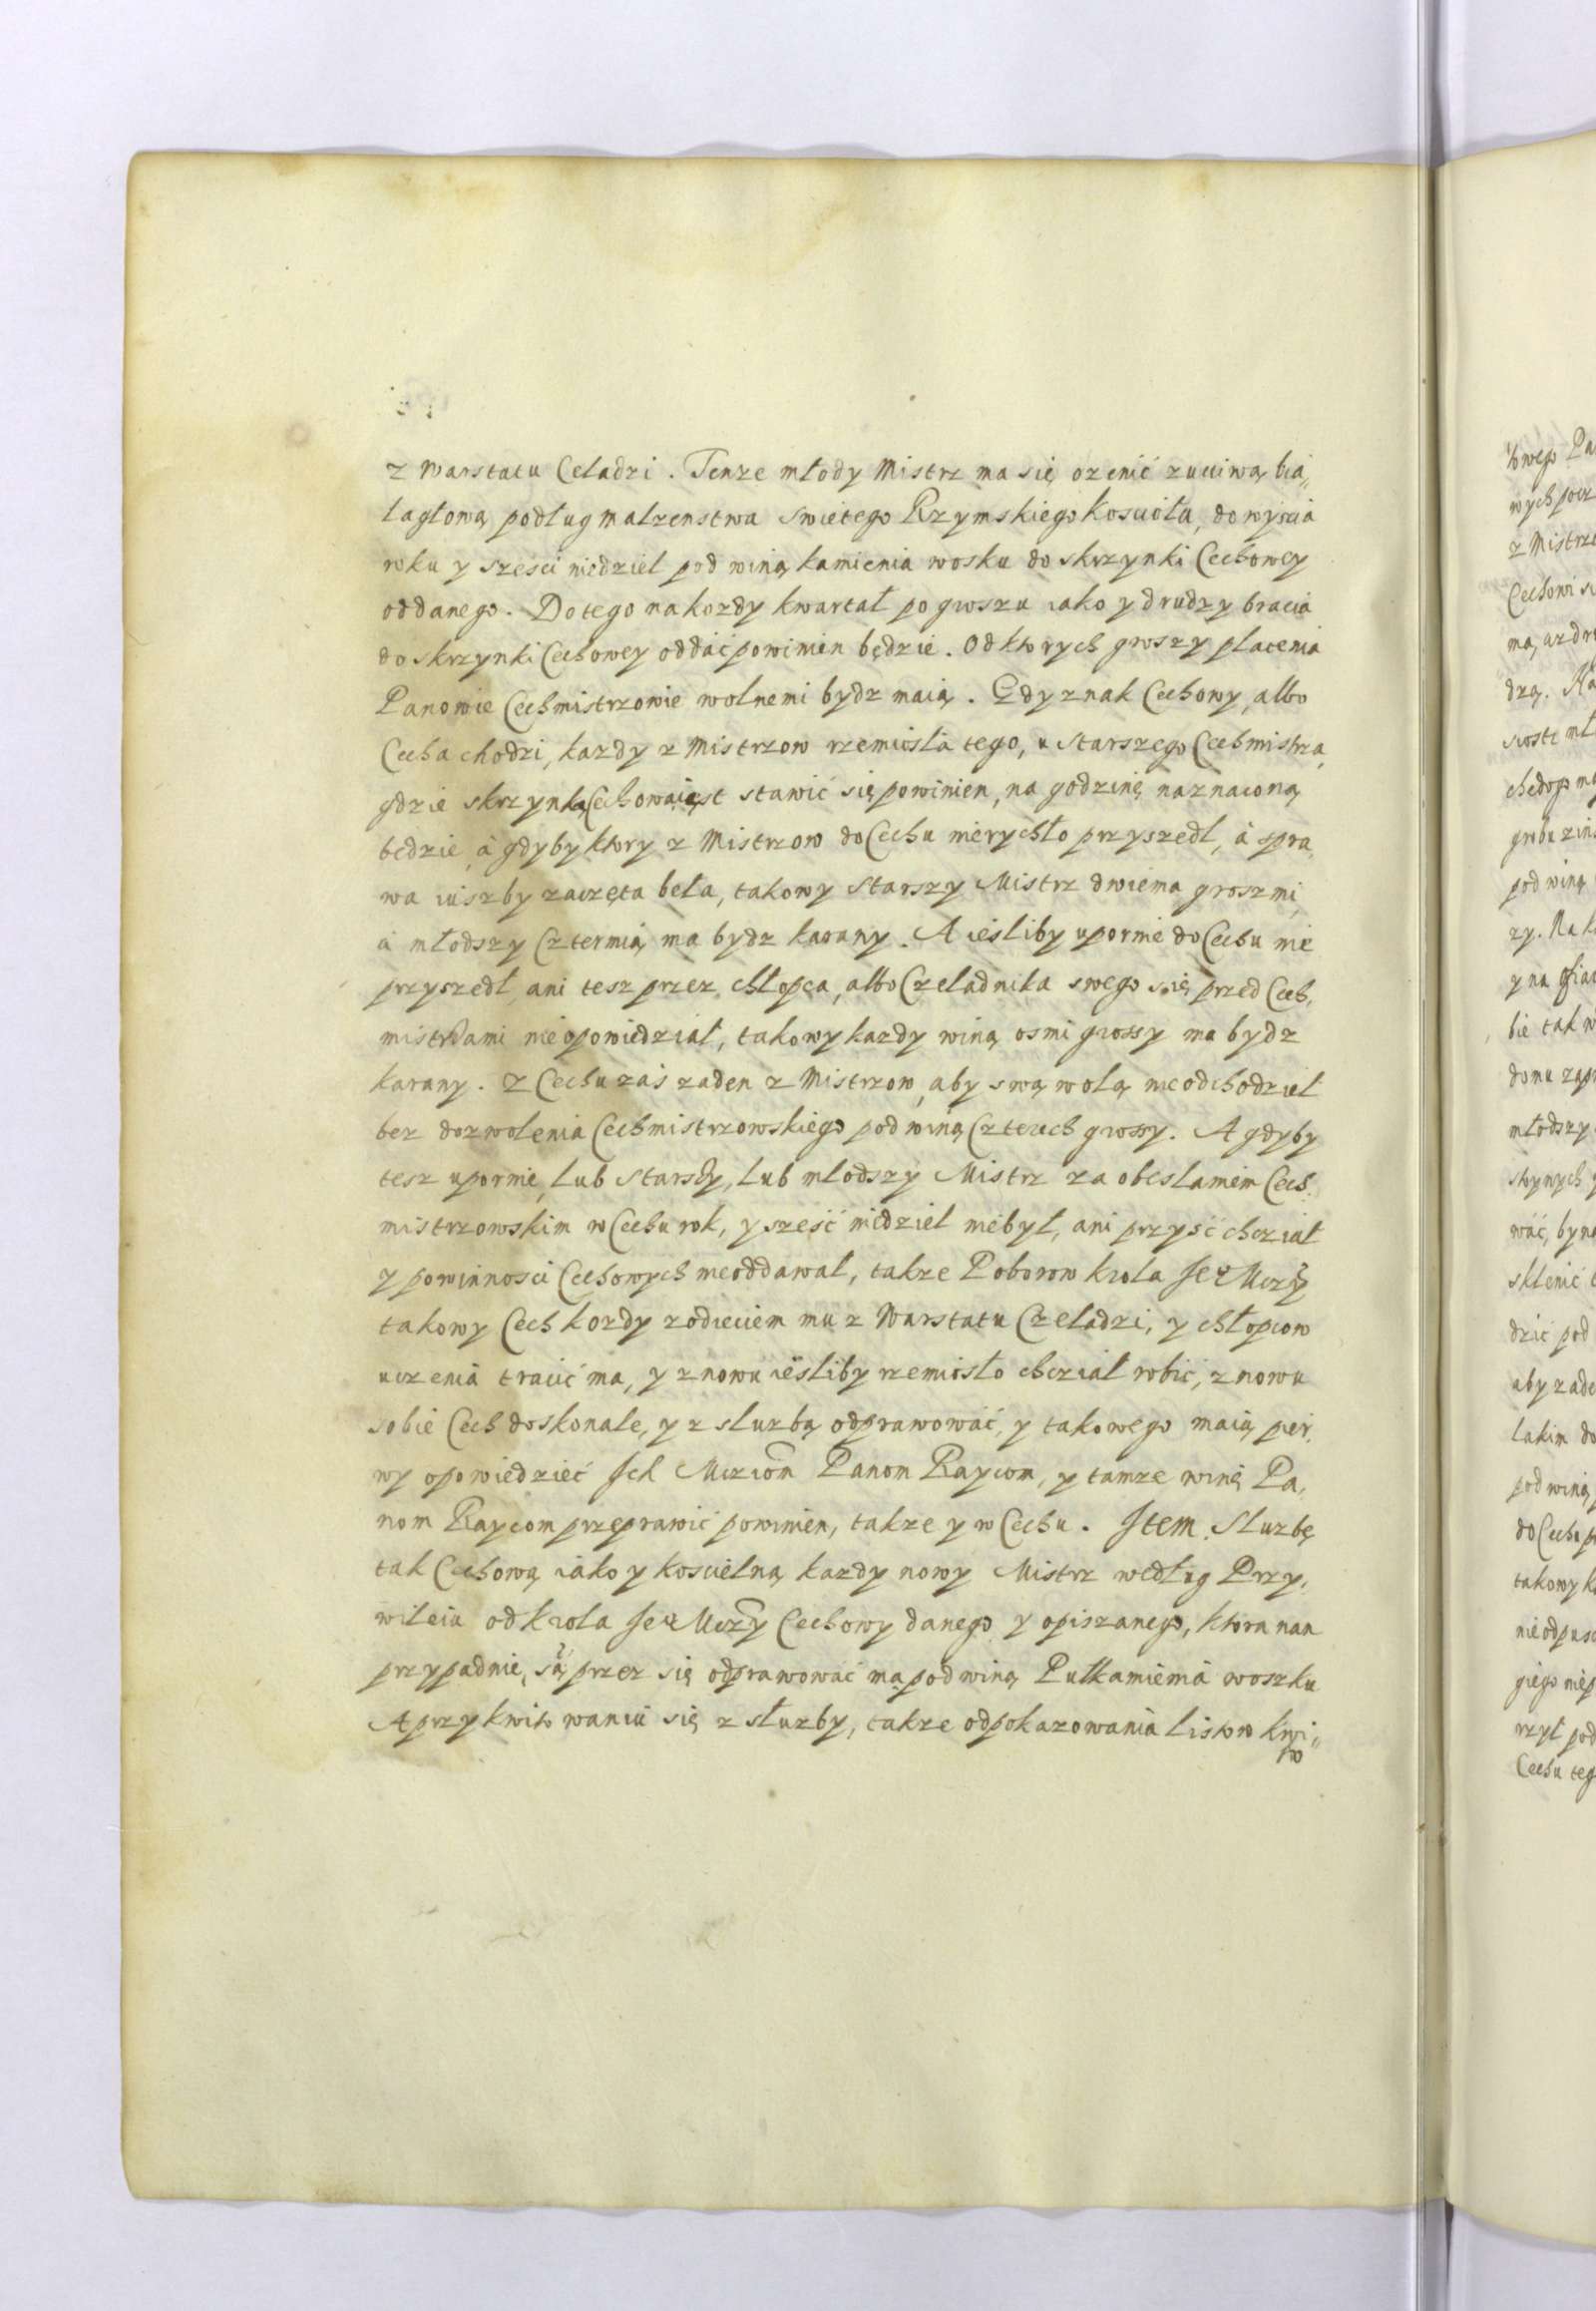 z Warstatu Celadzi. Tenze młody Mistrz ma się ozenić z ucciwą bia„
lagłową podług małzenstwa swietego Rzymskiego Koscioła, do wyscia
roku y szesci niedziel pod winą kamienia wosku do skrzynki Cechowey
oddanego. Do tego na kozdy kwartał po groszu iako y drudzy bracia
do skrzynki Cechowey oddać powinien będzie. Od ktorych groszy płacenia
Panowie Cechmistrzowie wolnemi bydz maią. Gdy znak Cechowy, albo
Cecha chodzi, kazdy z Mistrzow rzemiosła tego, u Starszego Cechmistrza,
gdzie skrzynka Cechowa iest stawić się powinien, na godzinę naznaconą
będzie, à gdyby ktory z Mistrzow do Cechu nierychło przyszedl, à spra„
wa iuszby zaczęta beła, takowy Starszy Mistrz dwiema groszmi,
à młodszy Cztermią ma bydz karany. A iesliby upornie do Cechu nie
przyszedł, ani tesz przez chłopca, albo Czeladnika swego się przed Cech„
mistrzami nie opowiedział, takowy kazdy winą osmi grossy ma bydz
karany. Z Cechu zaś zaden z Mistrzow, aby swą wolą nie odchodzieł
bez dozwolenia Cechmistrzowskiego pod winą Czterech grossy. A gdyby
tesz upornie, lub Starszy, lub młodszy Mistrz za obesłaniem Cech„
mistrzowskim w Cechu rok, y sześć niedziel niebył, ani przyść chcział
y powinnosci Cechowych nieoddawał, takze Poborow krola Je° Mczi
takowy Cech kozdy z odięciem mu z Warstatu Czeladzi, y chłopcow
uczenia tracić ma, y znowu iesliby rzemiosło chcział robić, znowu
sobie Cech doskonale, y z sluzbą odprawować, y takowego maią pier„
wy opowiedzieć Ich Mcziom Panom Raycom, y tamze winę Pa„
nom Raycom przeprawić powinien, takze y w Cechu. Item Sluzbę
tak Cechową iako y koscielną kazdy nowy Mistrz według Przy„
wileiu od krola Je° Mczy Cechowy danego y opiszanego, ktora nan
przypadnie, są przez się odprawować ma pod winą Pułkamienia woszku
A przy kwitowaniu się z słuzby, takze odpokazowania listow kwi„
to